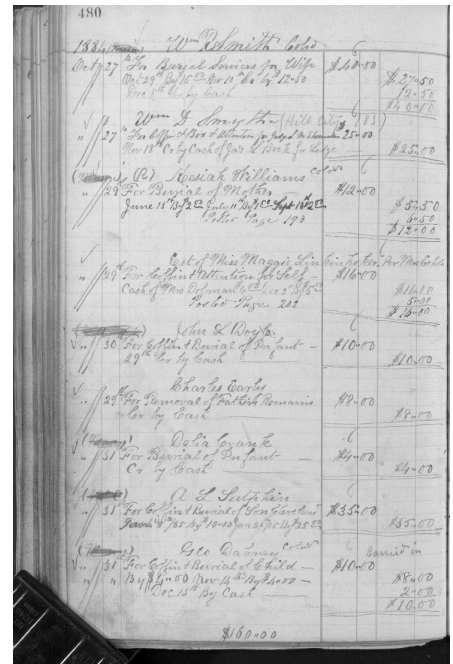 480
1884 Wm R Smith Col'd
Oct 27 For Burial Services for Wife $40.00
Oct 29th By 15.00 Nov 10th Cr by 12.50 $27.50
by Cash 12.50
$40.00
Wm D. Smythe (Hill City 183)
27 For Coffin & Box & Attention for $25.00
Nov 18th Cr by Cash of Jas L for Lodge $25.00
Kesiah Williams Col'd
29 For Burial of Mother $12.00
June 15th By 2.00 July 11th By $5.50
6.50
Page 193 $12.00
Est of Miss Maggie
29th For Coffin & Attention for Self $16.00
Cash of Mrs Dec 2nd By 5.00 $11.00
Posted Page 202 5.00
$16.00
John L Doyle
30 For Coffin & Burial of Infant — $10.00
29th Cr by Cash $10.00
Charles Early
29th For Removal of Father's Remains $8.00
Cr by Cash $8.00
Delia Crank
31 For Burial of Infant — $4.00
Cr by Cash $4.00
A L Sulphin
31 For Coffin & Burial of Son Cleveland $35.00
$35.00
Geo Dabney Col'd Carried in
31 For Coffin & Burial of Child — $10.00
By $4.00 Nov 14th By $4.00 — $8.00
Dec 15th By Cash — 2.00
$10.00
$160.00